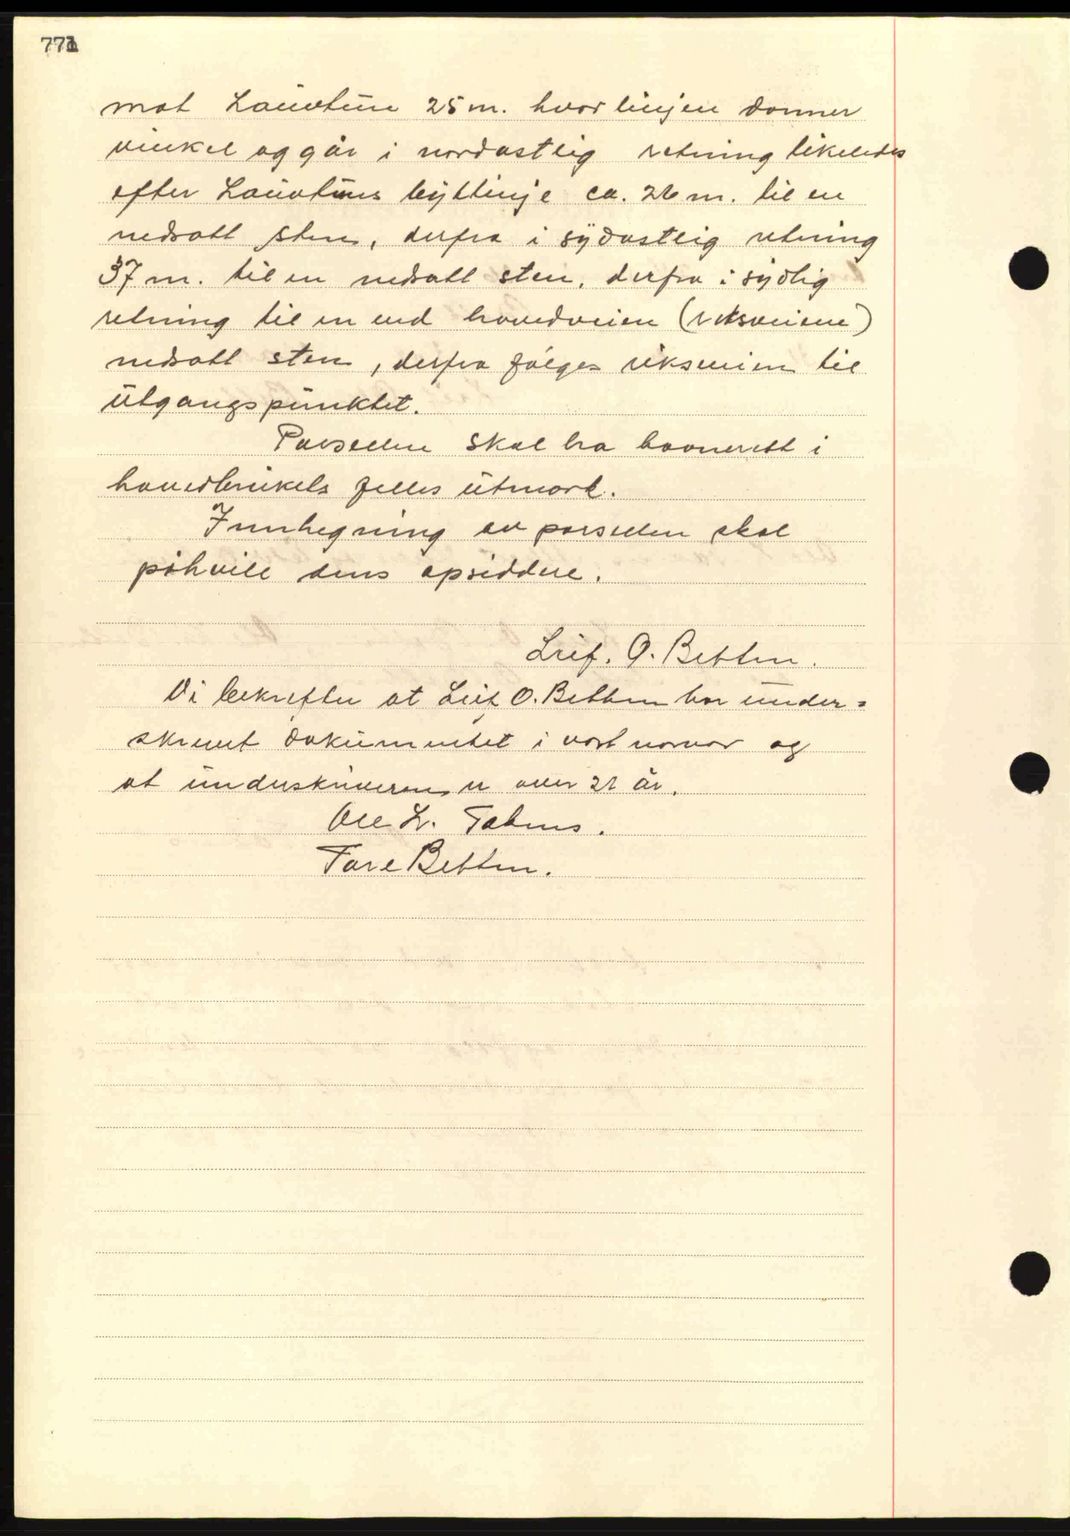 771
mot Lauvtun 25 m. hvor linjen danner
vinkel og går i nordøstlig retning likeledes
efter Lauvtuns byttlinje ca. 26 m. til en
nedsatt sten, derfra i sydøstlig retning
37 m. til en nedsatt sten, derfra i sydlig
retning til en ved hovedveien (riksveiene)
nedsatt sten, derfra følges riksveien til
utgangspunktet.
Parsellen skal ha havnerett i
hovedbrukets felles utmark.
Innhegning av parsellen skal
påhvile dens opsiddere.
Leif. O. Betten.
Vi bekrefter at Leif O. Betten har under=
skrevet dokumentet i vort nærvær og
at underskriveren er over 21 år.
Ole L.
Tore Betten.